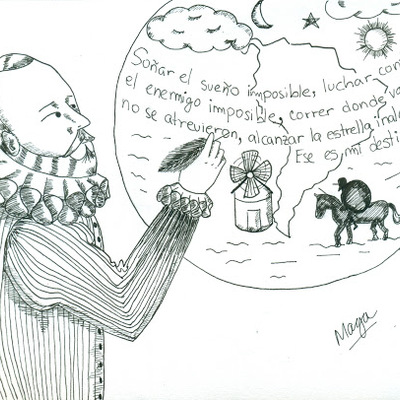 Soñar el sueño imposible, luchar con
el enemigo imposible, correr donde va
no se atrevieron, alcanzar la estrella
Ese es mi desti
Maya